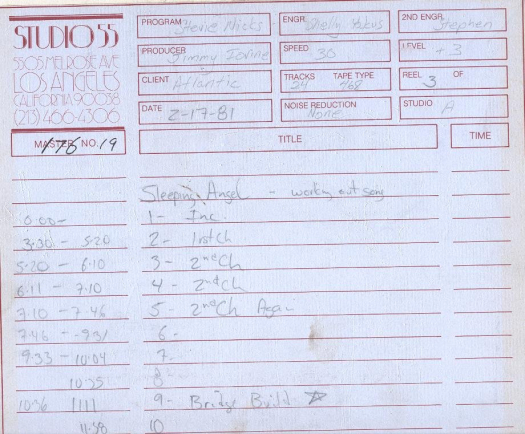 STUDIO 55
5505 MELROSE AVE
LOS ANGELES
CALIFORNIA 90038
(213) 466-4306
PROGRAM Stevie Nicks
ENGR. Shelly Yakus
2ND ENGR. Stephen
PRODUCER Jimmy Iovine
SPEED 30
LEVEL +3
CLIENT Atlantic
TRACKS 24 TAPE TYPE 468
REEL 3 OF
DATE 2-17-81
NOISE REDUCTION None
STUDIO A
MASTER NO. 19
TITLE
TIME
Sleeping Angel - working out song
0:00- 1- Inc.
3:30 - 5:20 2- 1rst Ch
5:20 - 6:10 3- 2nd Ch
6:11 - 7:10 4- 2nd Ch
7:10 - 7:46 5- 2nd Ch Again
7:46 - 9:31 6-
9:33 - 10:04 7-
10:25 8-
10:36 1111 9- Bridge Build ☆
11:38 10